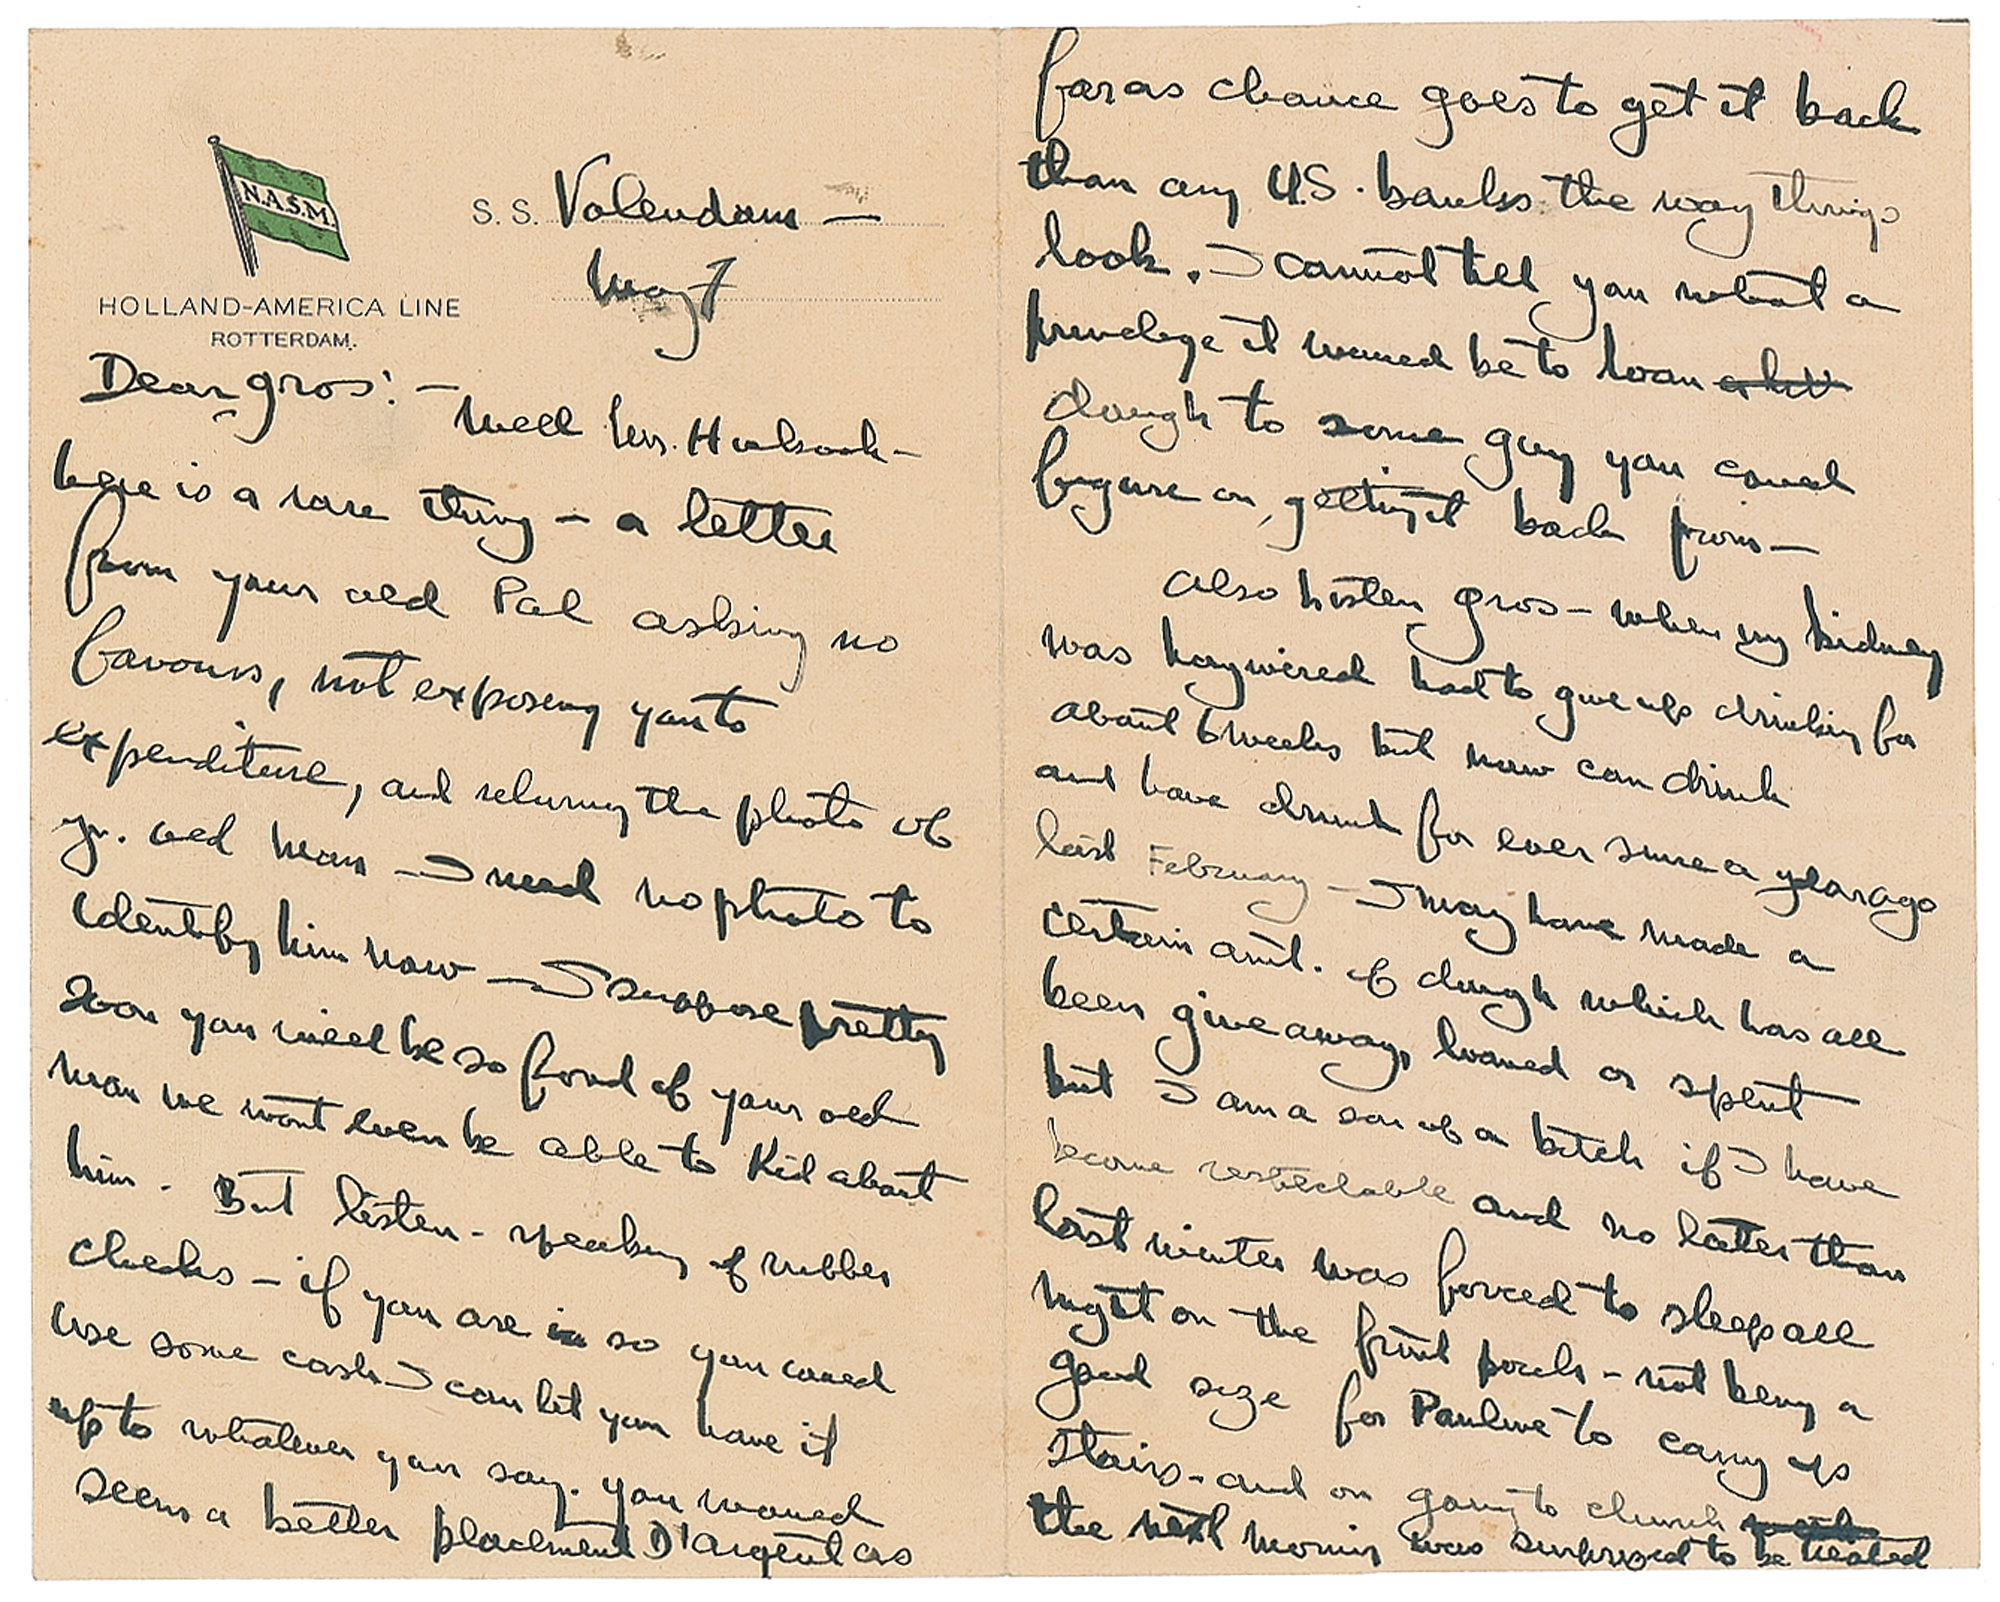 N.A.S.M.
HOLLAND-AMERICA LINE
ROTTERDAM.
S.S. Volendam —
May 7
Dear Gros: —
Well Mr. Hubsook —
here is a rare thing — a letter
from your old Pal asking no
favours, not exposing you to
expenditure, and returning the photo of
yr. old man — I need no photo to
identify him now — I suppose pretty
soon you will be so fond of your old
man we wont even be able to Kid about
him. But listen - speaking of rubber
checks — if you are in so you could
use some cash I can let you have it
up to whatever you say. You would
seem a better placement D'argent as
far as chance goes to get it back
than any U.S. banks the way things
look. I cannot tell you what a
privelege it would be to loan
dough to some guy you could
figure on getting it back from —
Also listen Gros — when my kidney
was haywired had to give up drinking for
about 6 weeks but now can drink
and have drunk for ever since a year ago
last February — I may have made a
certain amt. of dough which has all
been give away, loaned or spent
but I am a son of a bitch if I have
become respectable and no later than
last winter was forced to sleep all
night on the front porch - not being a
good size for Pauline to carry up
stairs - and on going to church
the next morning was surprised to be treated